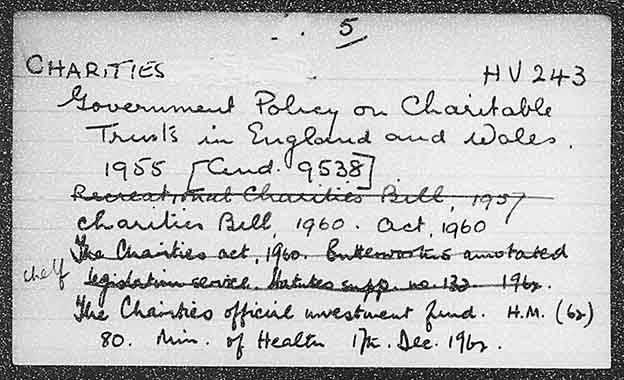 5
CHARITIES HV 243
Government Policy on Charitable
Trusts in England and Wales.
1955 [Cmd. 9538]
Recreational Charities Bill, 1957
Charities Bill, 1960. Act, 1960
The Charities act, 1960. Butterworth's annotated
shelf legislation service. Statutes supp. no. 132. 1962.
The Charities official investment fund. H.M. (62)
80. Min. of Health 17th. Dec. 1962.